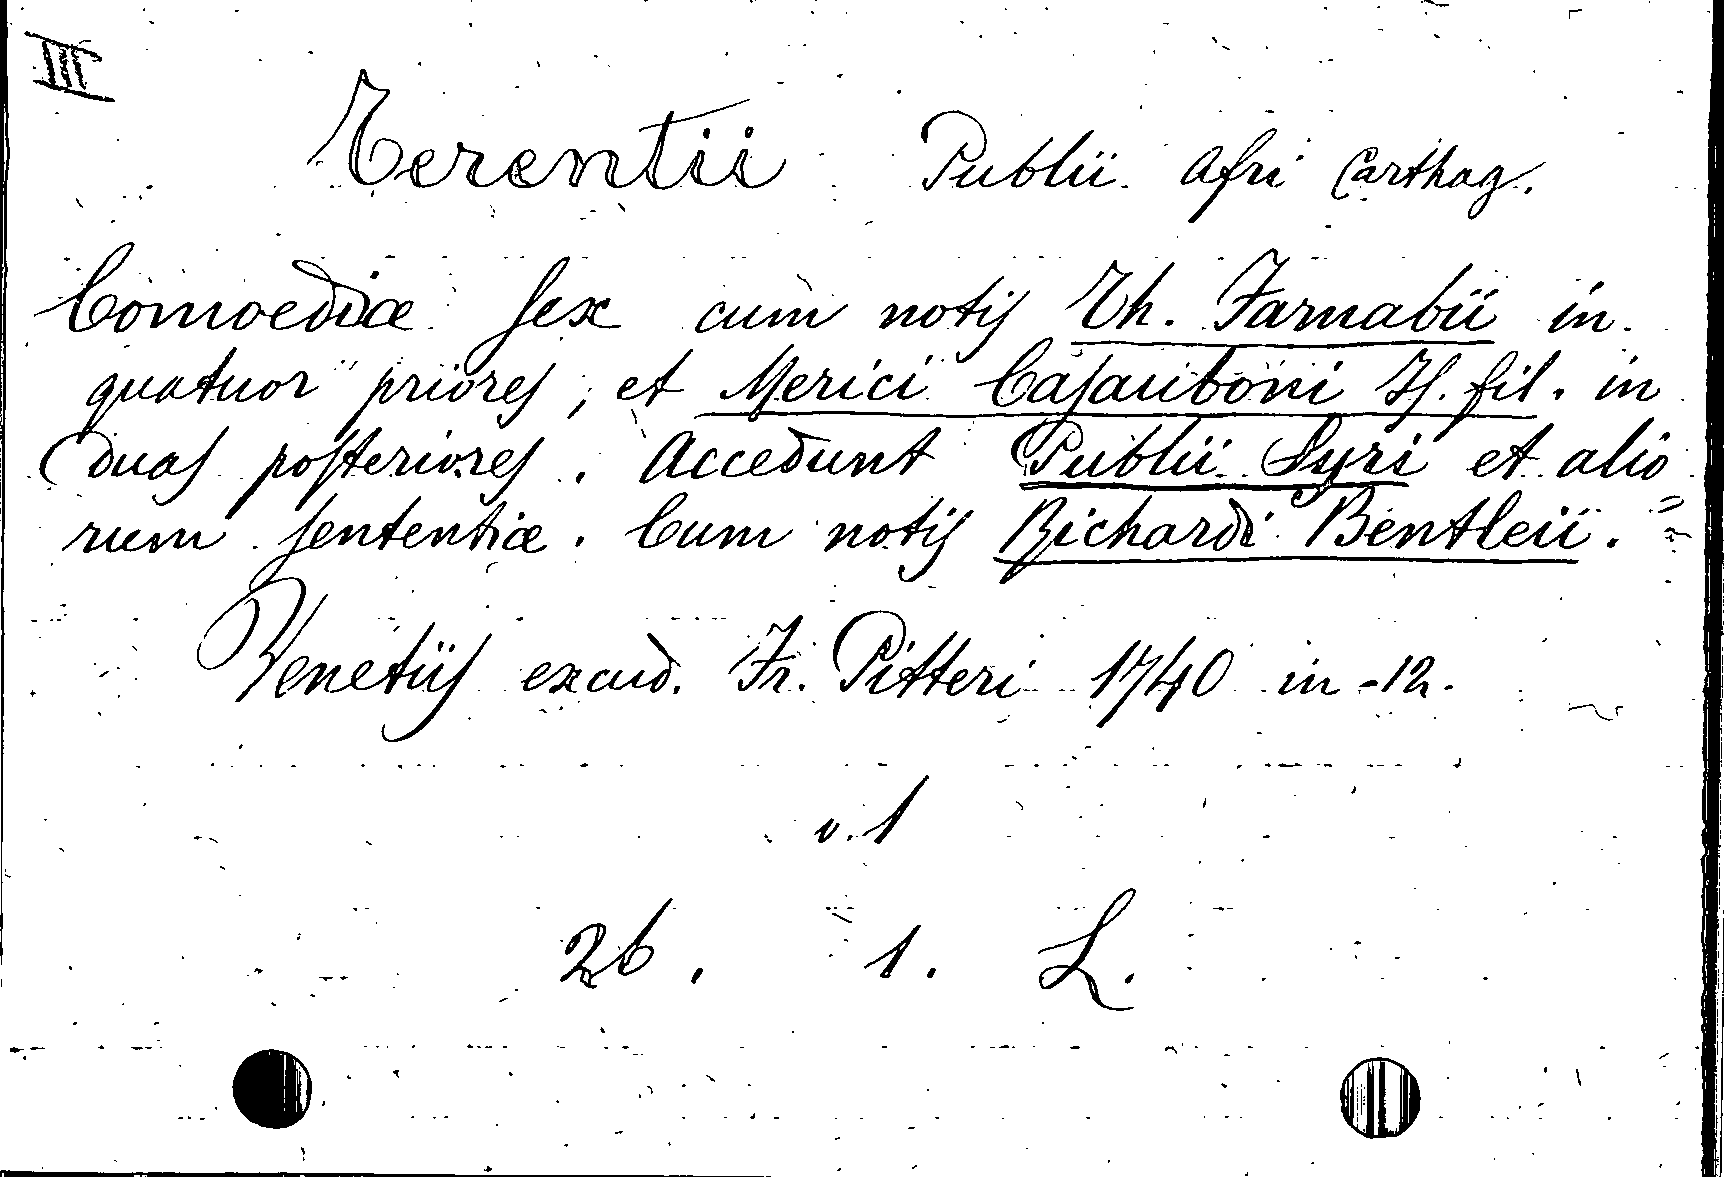 III
Terentii Publii Afri Carthag.
Comoediæ sex cum notis Th. Farnabii in
quatuor priores, et Merici Casauboni Is. fil. in
duas posteriores. Accedunt Publii Syri et alio=
rum sententiæ. Cum notis Richardi Bentleii.
Venetiis excud. Fr. Pitteri 1740 in-12.
v. 1
26. 1. L.